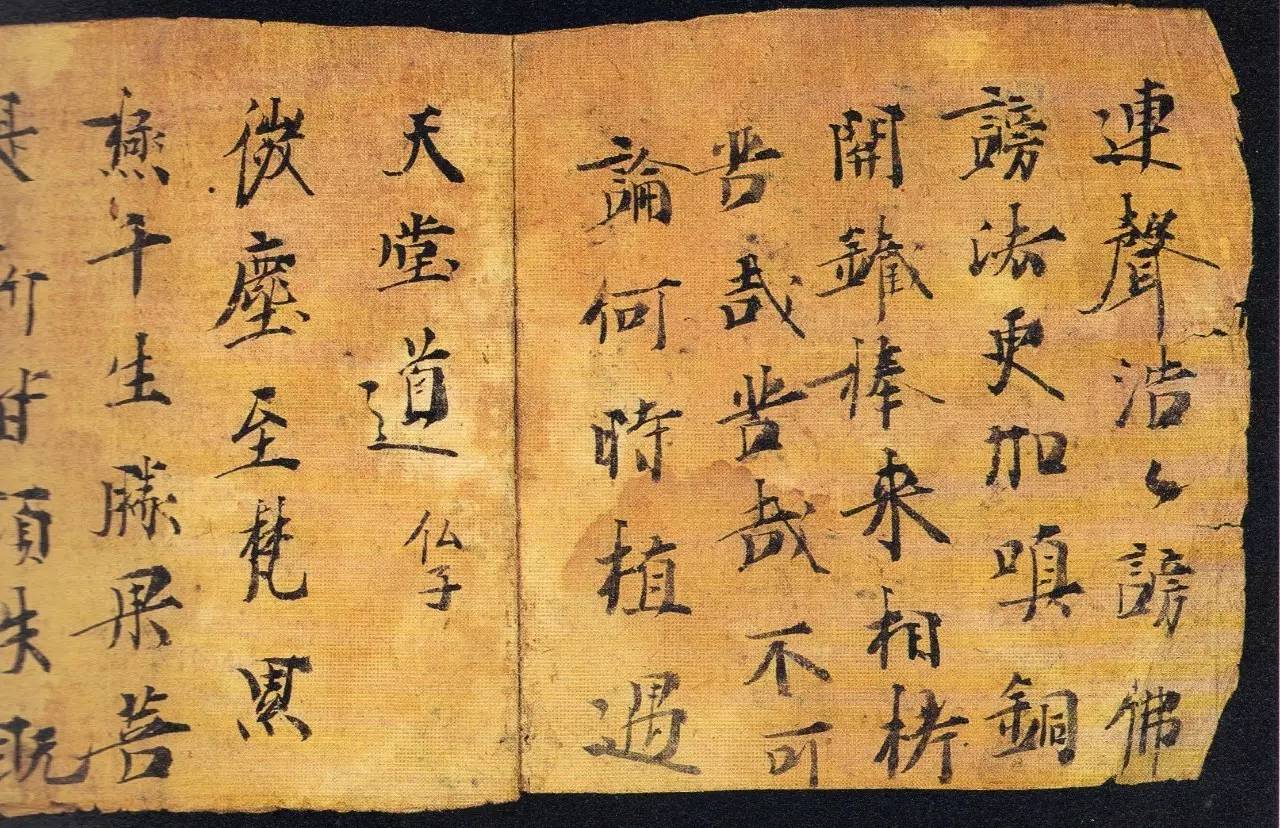 連聲浩々謗佛
謗法更加嗔銅
開鐵棒来相拷
苦哉苦哉不可
論何時植遇
天堂道
仏子
微塵至梵
千生勝果菩
失既